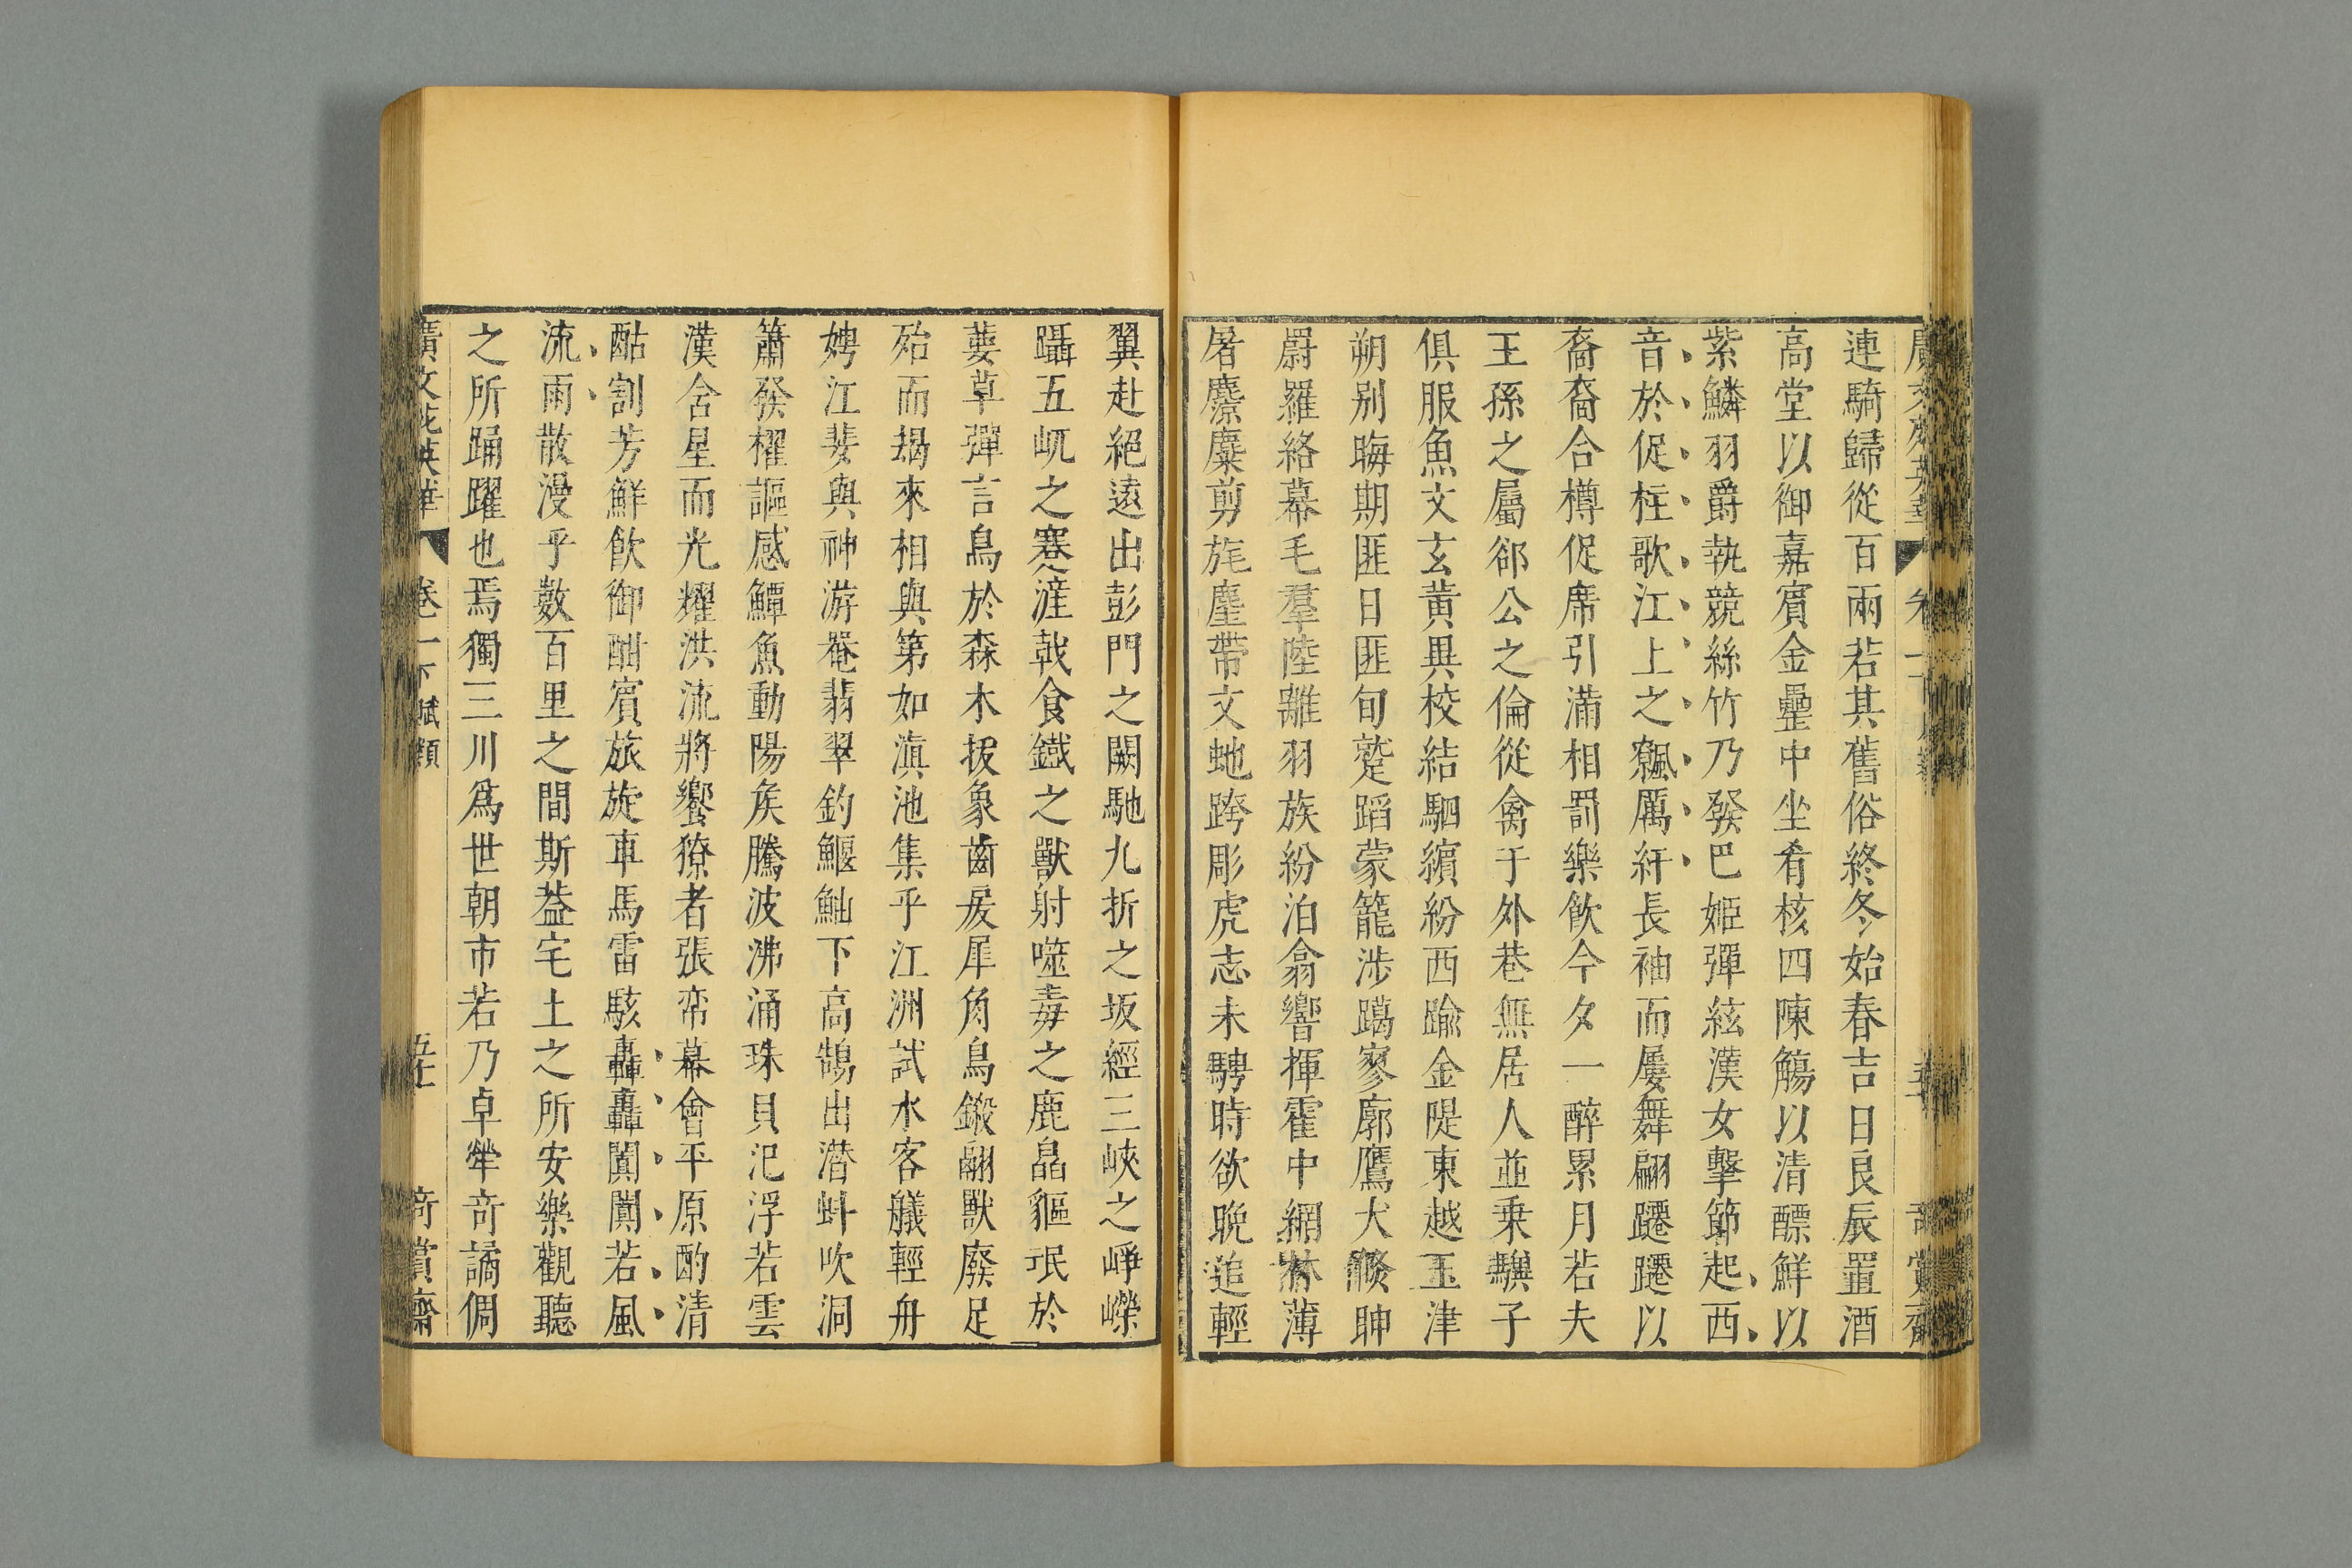 連騎歸從百兩若其舊俗終冬始春吉日良辰置酒
高堂以御嘉賓金罍中坐肴核四陳觴以清醥鮮以
紫鱗羽爵執競絲竹乃發巴姬彈絃漢女擊節起西
音於促柱歌江上之飉厲紆長袖而屢舞翩躚躚以
裔裔合樽促席引滿相罰樂飲今夕一醉累月若夫
王孫之屬郤公之倫從禽于外巷無居人並乗驥子
俱服魚文玄黃異校結駟繽紛西踰金隄東越玉津
朔别晦期匪日匪旬蹵蹈蒙籠涉躢寥廓鷹犬倐眒
罻羅絡幕毛羣陸離羽族紛泊翕響揮霍中網林薄
屠麖麋剪旄麈帶文虵跨彫虎志未騁時欲晩追輕
翼赴絕遠出彭門之闕馳九折之坂經三峽之崢嶸
躡五屼之蹇滻戟食鐵之獸射噬毒之鹿皛貙氓於
葽草彈言鳥於森木拔象齒戾犀角鳥鎩翮獸廢足
殆而朅來相與第如滇池集乎江洲試水客艤輕舟
娉江婓與神游罨翡翠釣鰋鮋下高鵠出潛虯吹洞
簫發櫂謳感鱏魚動陽矦騰波沸涌珠貝汜浮若雲
漢含星而光耀洪流將饗獠者張帟幕會平原酌清
酤割芳鮮飲御酣賓旅旋車馬雷駭轟轟闐闐若風
流雨散漫乎數百里之間斯葢宅土之所安樂觀聽
之所踊躍也焉獨三川爲世朝市若乃卓犖奇譎倜
廣文苑英華 卷一下賦類 奇賞齋